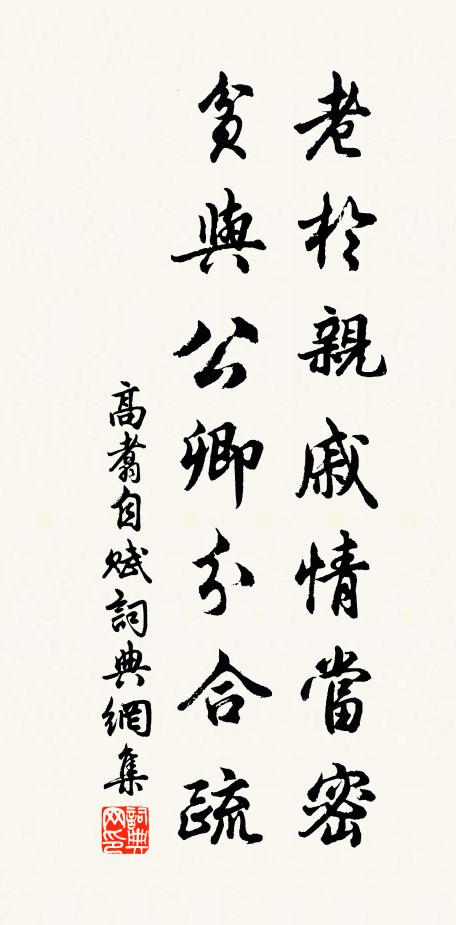 老於親戚情當密
貧與公卿分合疏
高翥自賦詞典網集
詞典
网印